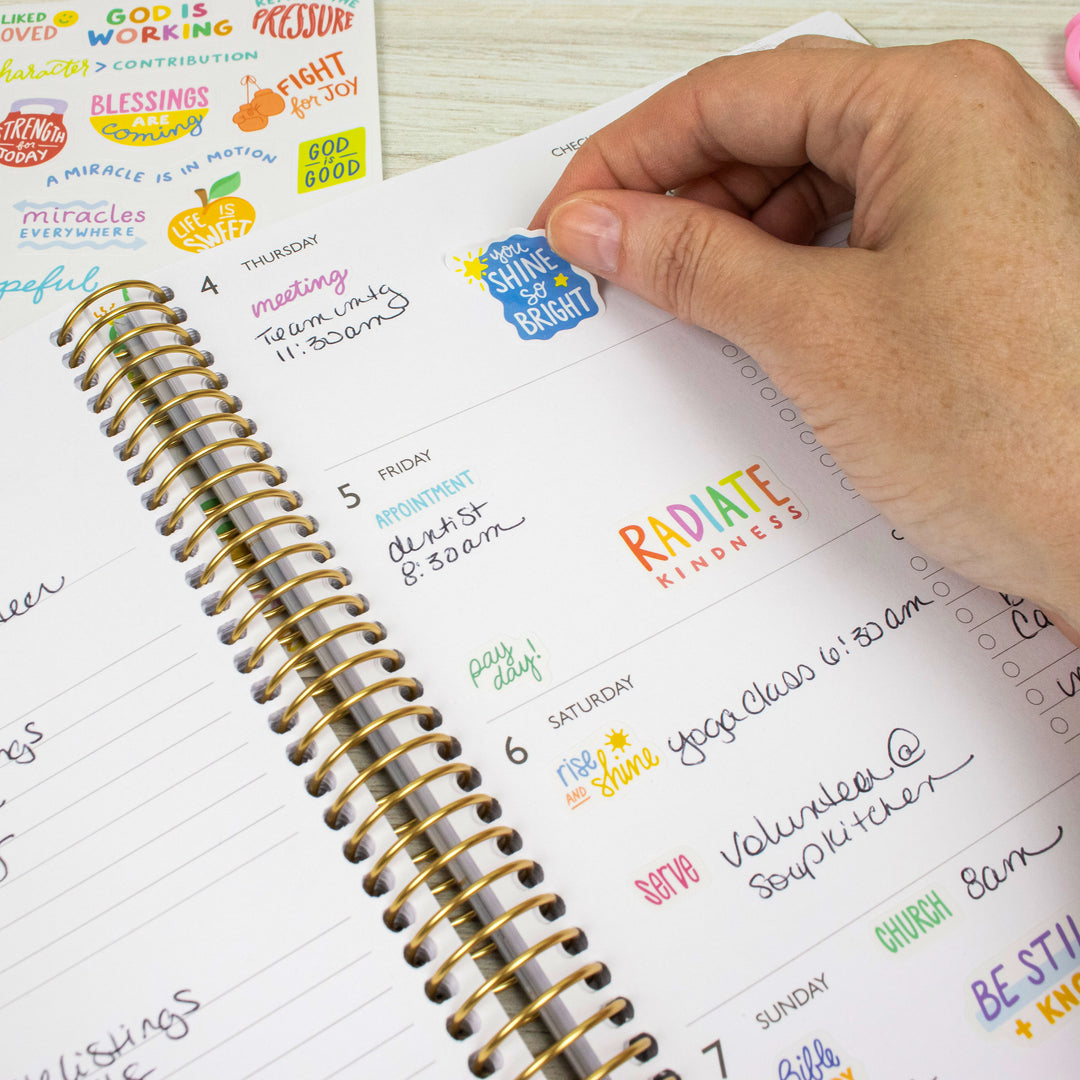 LIKED
LOVED
GOD IS
WORKING
PRESSURE
character > CONTRIBUTION
STRENGTH
for
TODAY
BLESSINGS
ARE
coming
FIGHT
for JOY
A MIRACLE IS IN MOTION
GOD
is
GOOD
miracles
EVERYWHERE
LIFE IS
SWEET
4 THURSDAY
meeting
Team mtg
11:30am
you
SHINE
so
BRIGHT
5 FRIDAY
APPOINTMENT
dentist
8:30am
RADIATE
KINDNESS
pay
day!
6 SATURDAY
rise
AND shine
yoga class 6:30am
serve
volunteer @
soup kitchen
7 SUNDAY
CHURCH 8am
BE STIL
+ KNO
Bible